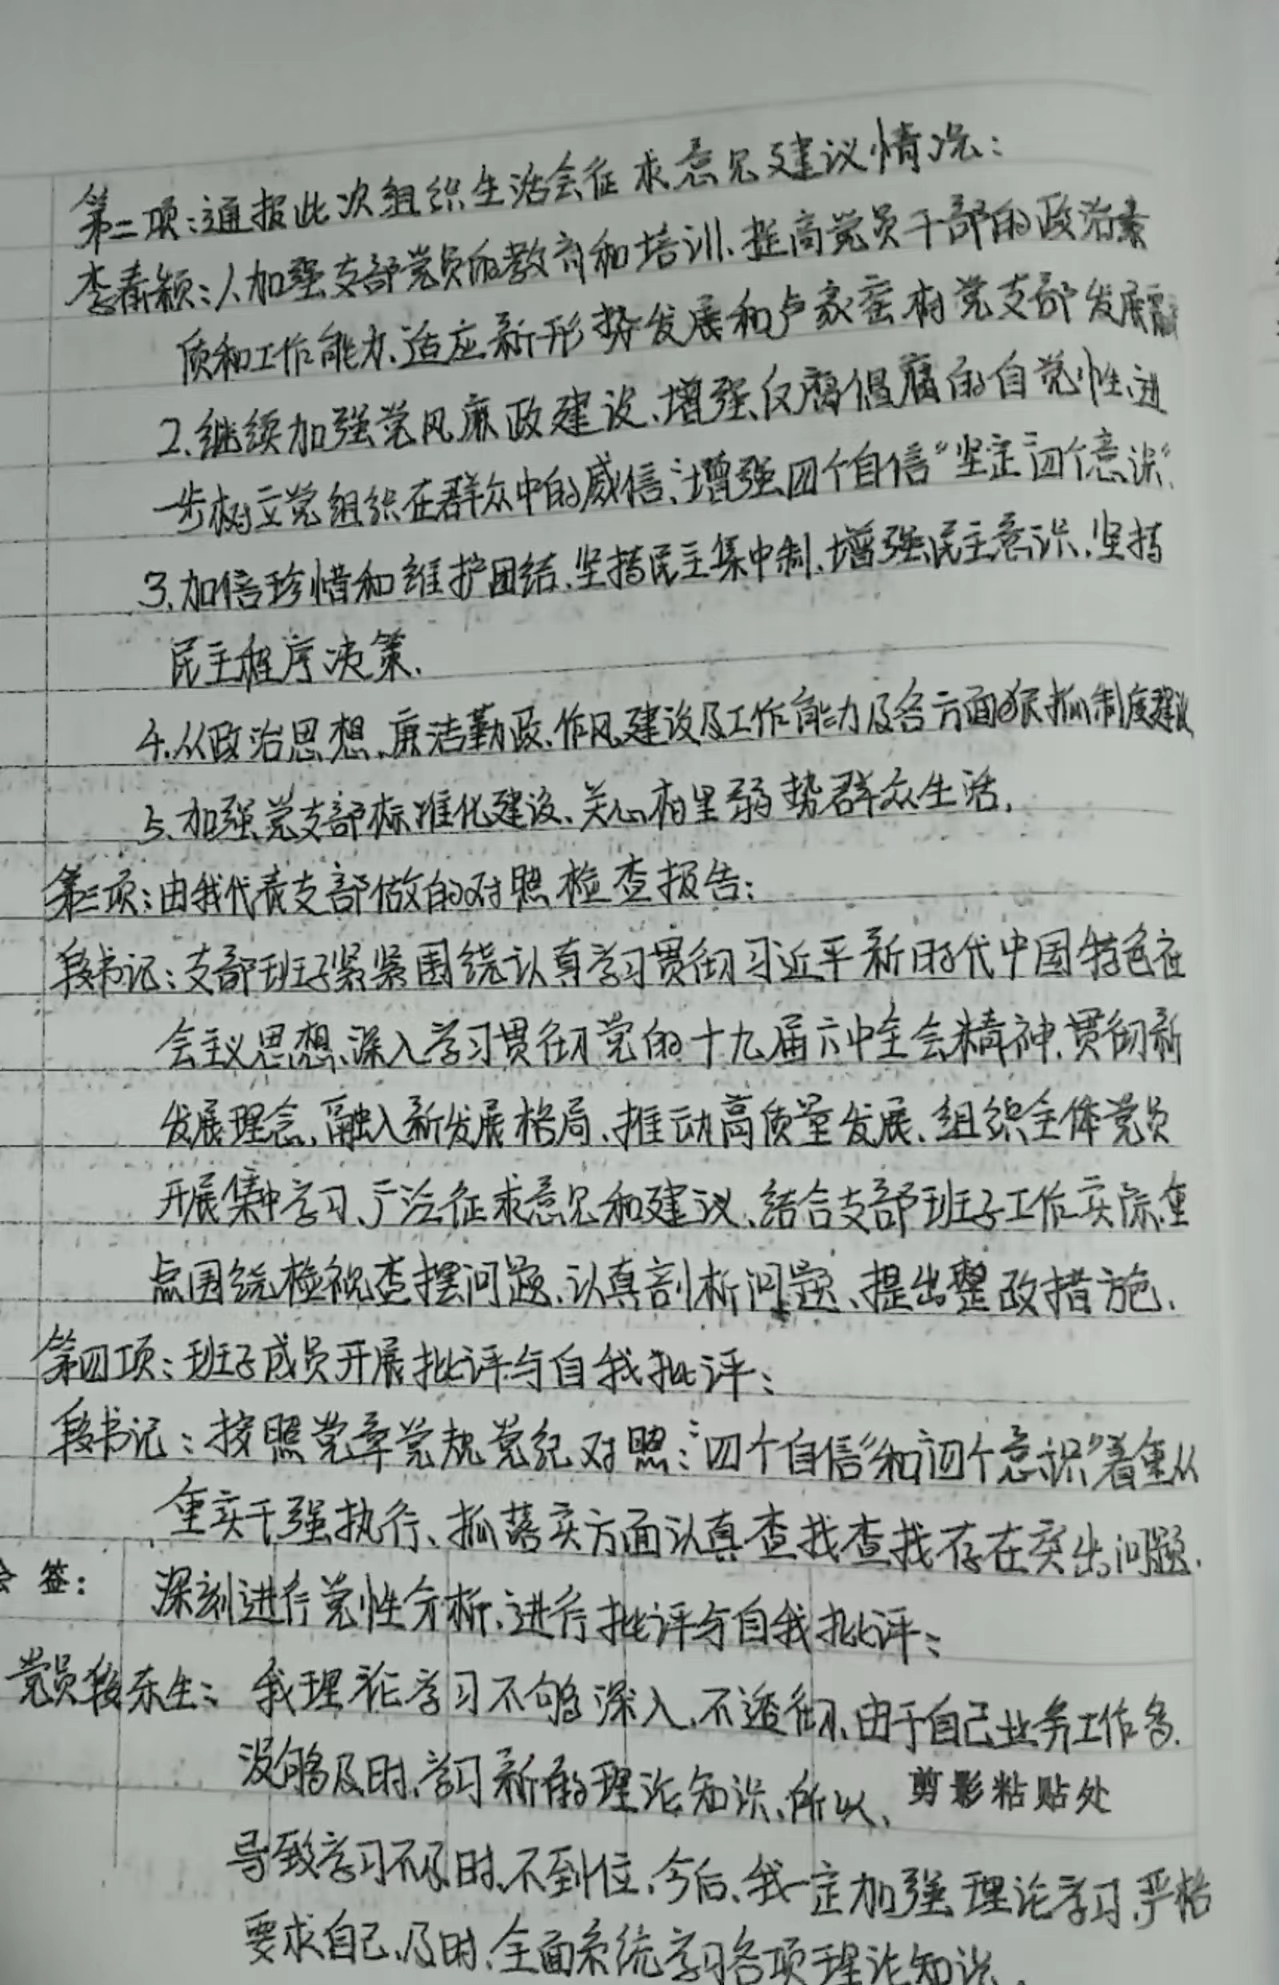 第二项：通报此次组织生活会征求意见建议情况：
李春颖：1、加强支部党员的教育和培训、提高党员干部的政治素
质和工作能力、适应新形势发展和卢家窑村党支部发展需
2、继续加强党风廉政建设、增强反腐倡腐的自觉性、进
一步树立党组织在群众中的威信、“增强四个自信”坚定“四个意识”、
3、加倍珍惜和维护团结、坚持民主集中制、增强民主意识、坚持
民主程序决策、
4、从政治思想、廉洁勤政、作风建设及工作能力及各方面狠抓制度建设
5、加强党支部标准化建设、关心村里弱势群众生活、
第三项：由我代表支部做的对照检查报告：
段书记：支部班子紧紧围绕认真学习贯彻习近平新时代中国特色社
会主义思想、深入学习贯彻党的十九届六中全会精神、贯彻新
发展理念、融入新发展格局、推动高质量发展、组织全体党员
开展集中学习、广泛征求意见和建议、结合支部班子工作实际、重
点围绕检视查摆问题、认真剖析问题、提出整改措施、
第四项：班子成员开展批评与自我批评：
段书记：按照党章党规党纪对照：“四个自信”和“四个意识”着重从
重实干强执行、抓落实方面认真查找查找存在突出问题、
签： 深刻进行党性分析、进行批评与自我批评：
党员段东生： 我理论学习不够深入、不透彻、由于自己业务工作多、
没够及时、学习新的理论知识、所以、 剪影粘贴处
导致学习不及时、不到位、今后、我一定加强理论学习、严格
要求自己、及时、全面系统学习各项理论知识、